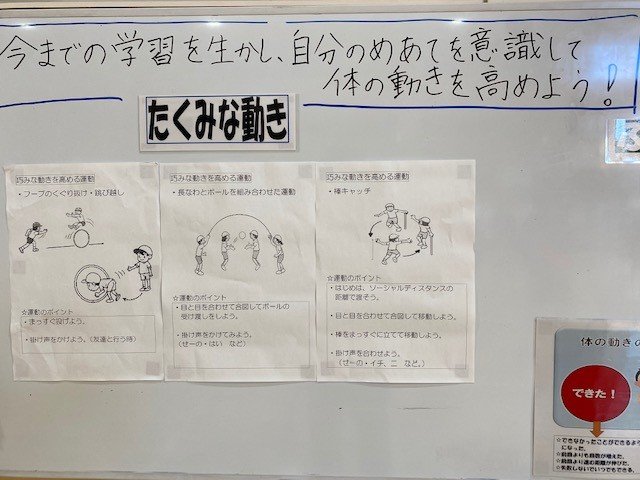 今までの学習を生かし、自分のめあてを意識して
体の動きを高めよう!
たくみな動き
巧みな動きを高める運動
・フープのくぐり抜け・跳び越し
☆運動のポイント
・まっすぐ投げよう。
・掛け声をかけよう。(友達と行う時)
巧みな動きを高める運動
・長なわとボールを組み合わせた運動
☆運動のポイント
・目と目を合わせて合図してボールの
受け渡しをしよう。
・掛け声をかけてみよう。
(せーの・はい など)
巧みな動きを高める運動
・棒キャッチ
☆運動のポイント
・はじめは、ソーシャルディスタンスの
距離で渡そう。
・目と目を合わせて合図して移動しよう。
・棒をまっすぐに立てて移動しよう。
・掛け声を合わせよう。
(せーの・イチ、ニ など。)
体の動きの
できた!
☆できなかったことができるよう
になった。
☆前回よりも回数が増えた。
☆前回より進む距離が伸びた。
☆失敗しないでいつでもできる。